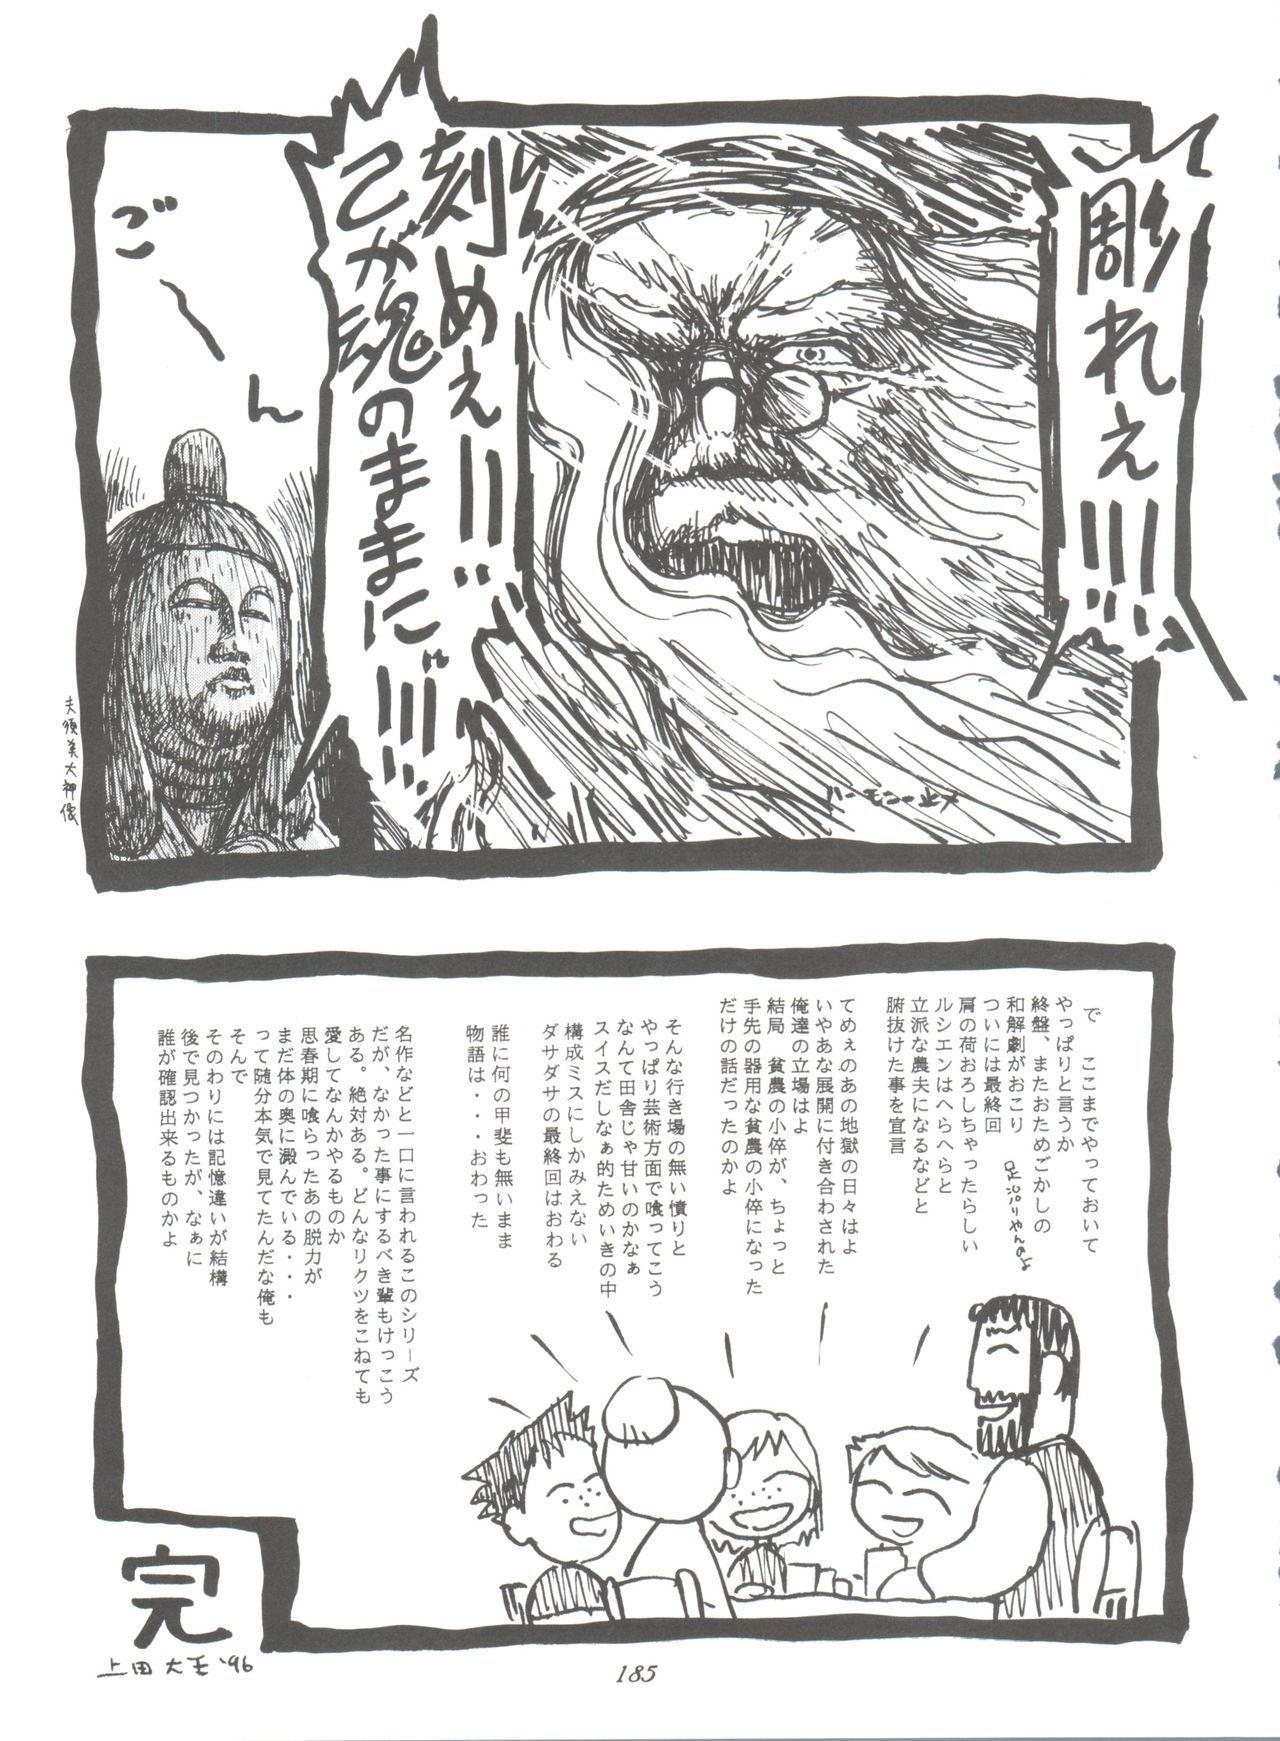 彫れえ!!!
刻めぇ!!
己が魂のままに!!!
ご〜ん
夫須美大神像
で　ここまでやっておいて
やっぱりと言うか
終盤、またおためごかしの
和解劇がおこり
ついには最終回
肩の荷おろしちゃったらしい
ルシエンはへらへらと
立派な農夫になるなどと
腑抜けた事を宣言
てめぇのあの地獄の日々はよ
いやあな展開に付き合わされた
俺達の立場はよ
結局　貧農の小倅が、ちょっと
手先の器用な貧農の小倅になった
だけの話だったのかよ
そんな行き場の無い憤りと
やっぱり芸術方面で喰ってこう
なんて田舎じゃ甘いのかなぁ
スイスだしなぁ的ためいきの中
構成ミスにしかみえない
ダサダサの最終回はおわる
誰に何の甲斐も無いまま
物語は・・・おわった
名作などと一口に言われるこのシリーズ
だが、なかった事にするべき輩もけっこう
ある。絶対ある。どんなリクツをこねても
愛してなんかやるものか
思春期に喰らったあの脱力が
まだ体の奥に澱んでいる・・・
って随分本気で見てたんだな俺も
そんで
そのわりには記憶違いが結構
後で見つかったが、なぁに
誰が確認出来るものかよ
完
上田大王'96
185